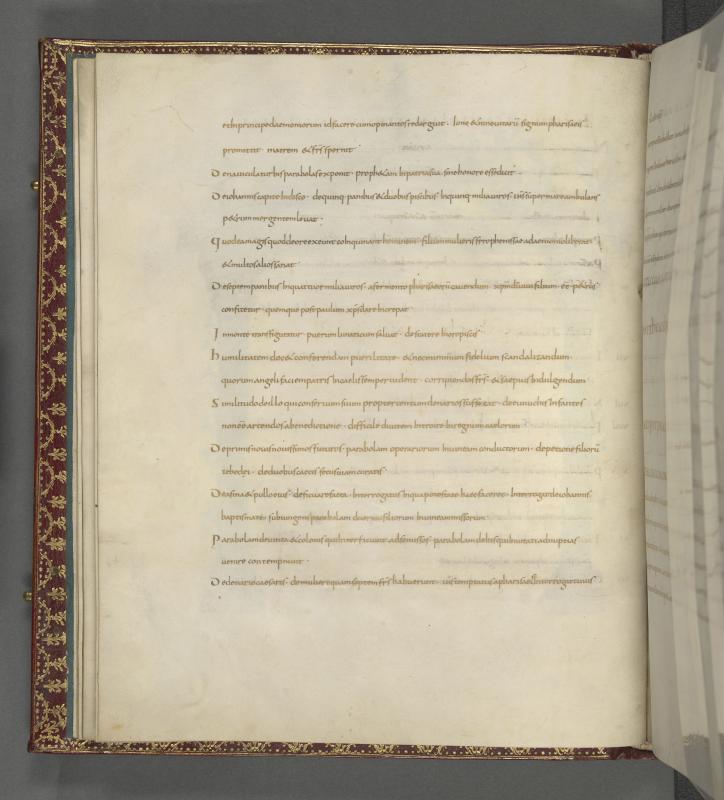 et in principe daemoniorum id facere eum opinantes redarguit · Ione & nineuitarū signum pharisaeis
promittit · matrem & frs spernit
De nauicula turbis parabolas exponit · prophetam in patria sua sine honore esse dicit
De iohannis capite In disco · de quinq; panibus & duobus piscibus In quinq; milia uiros · ihs super mare ambulans
petrum mergentem leuat ·
Quod ea magis quod de ore exeunt coInquinant hominem · filiam mulieris syrophenissae a daemonio liberat
& multos alios sanat ·
De septem panibus In quattuor milia uiros · a fermento pharisaeorū cauendum · xpm di uiui filium · petrus
confitetur · quem que post paulum xps increpat
In monte transfiguratur · puerum lunaticum saluat · de statere In ore piscis
humilitatem doc& conferendam puerilitate · & nec minimum fidelium scandalizandum
quorum angeli faciem patris In caelis semper uident · corripiendos frs · & saepius Indulgendum
Similitudo de illo qui conseruum suum propter centum denarios suffocat · de eunuchis Infantes
non arcendos a benedictione · difficile diuitem Introire In regnum caelorum
De primis nouissimos futuros · parabolam operariorum In uineam conductorum · de petione filiorū
zebedei · de duobus caecis secus uiam curatis ·
De asina & pullo eius · de ficu arefacta · Interrogatus In qua potestate haec faceret · Interrogat de iohannis
baptismate · subiungens parabolam duorum filiorum In uineam missorum
Parabolam de uinea & colonis qui Interficiunt ad se missos · parabolam de his qui Inuitati ad nuptias
uenire contempnunt ·
De denario caesaris · de muliere quam septem frs habuerunt · ihs temptatus a pharisaeis Interrogat unius